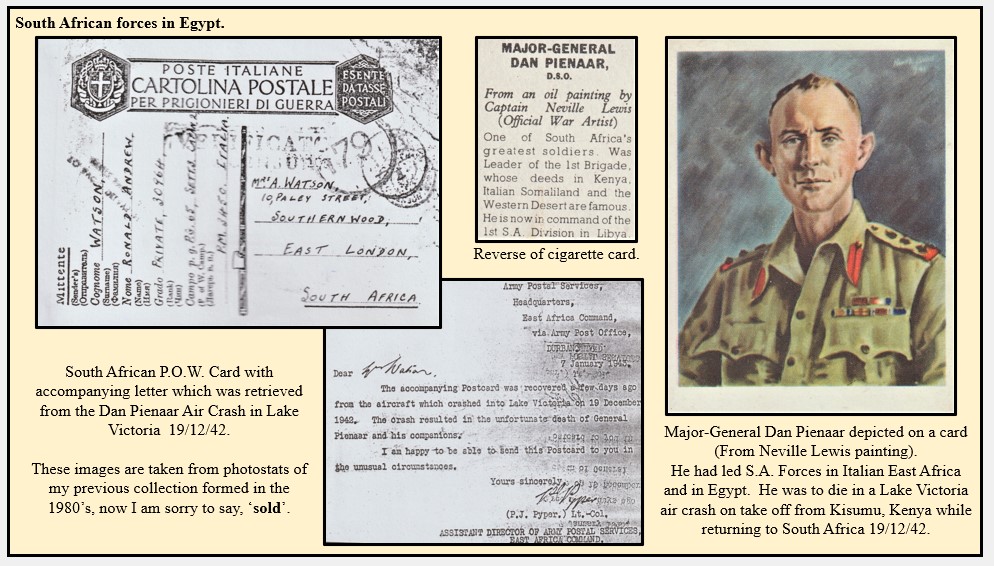 South African forces in Egypt.
POSTE ITALIANE
CARTOLINA POSTALE
PER PRIGIONIERI DI GUERRA
ESENTE
DA TASSE
POSTALI
79
Mittente
(Sender's)
(Отправитель)
Cognome WATSON
(Surname)
(Фамилия)
Nome RONALD ANDREW.
(Name)
(Имя)
Grado PRIVATE,
(Rank)
(Чин)
Campo p. g.
(P. of W. Camp)
MRS A. WATSON,
10, PALEY STREET,
SOUTHERNWOOD,
EAST LONDON,
SOUTH AFRICA
MAJOR-GENERAL
DAN PIENAAR,
D.S.O.
From an oil painting by
Captain Neville Lewis
(Official War Artist)
One of South Africa's
greatest soldiers. Was
Leader of the 1st Brigade,
whose deeds in Kenya,
Italian Somaliland and the
Western Desert are famous.
He is now in command of the
1st S.A. Division in Libya
Reverse of cigarette card.
Army Postal Services,
Headquarters,
East Africa Command,
via Army Post Office,
7 January 1943.
Dear Watson,
The accompanying Postcard was recovered a few days ago
from the aircraft which crashed into Lake Victoria on 19 December
1942. The crash resulted in the unfortunate death of General
Pienaar and his companions.
I am happy to be able to send this Postcard to you in
the unusual circumstances.
Yours sincerely,
(P.J. Pyper.) Lt.-Col.
ASSISTANT DIRECTOR OF ARMY POSTAL SERVICES,
EAST AFRICA COMMAND.
South African P.O.W. Card with
accompanying letter which was retrieved
from the Dan Pienaar Air Crash in Lake
Victoria 19/12/42.
These images are taken from photostats of
my previous collection formed in the
1980's, now I am sorry to say, 'sold'.
Major-General Dan Pienaar depicted on a card
(From Neville Lewis painting).
He had led S.A. Forces in Italian East Africa
and in Egypt. He was to die in a Lake Victoria
air crash on take off from Kisumu, Kenya while
returning to South Africa 19/12/42.